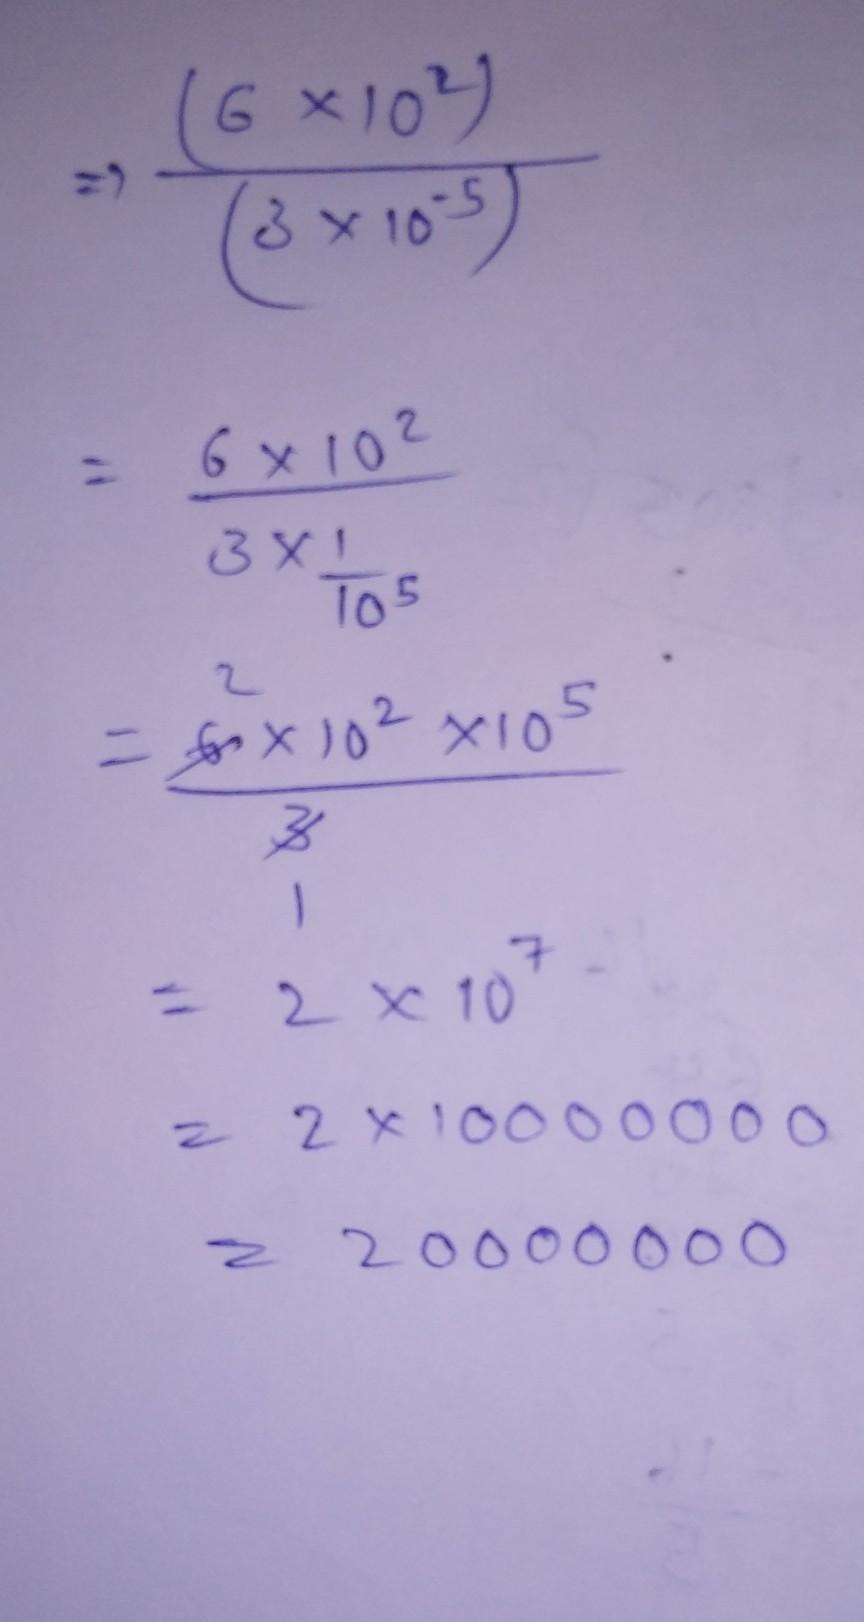 ⇒ (6 × 10²)
(3 × 10⁻⁵)
= 6 × 10²
3 × 1
10⁵
2
= 6 × 10² × 10⁵
3
1
= 2 × 10⁷
= 2 × 10000000
= 20000000